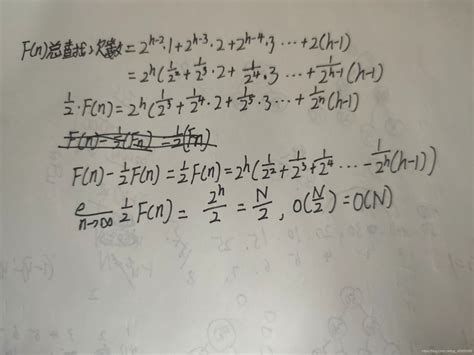 F(n)总查找次数=2^{h-2}·1+2^{h-3}·2+2^{h-4}·3 ⋯+2(h-1)
=2^h(1/2^2+1/2^3·2+1/2^4·3 ⋯+1/2^{h-1}(h-1)
1/2·F(n)=2^h(1/2^3+1/2^4·2+1/2^5·3⋯+1/2^h(h-1)
F(n)-1/2(Fn)=1/2(Fn)
F(n)-1/2F(n)=1/2F(n)=2^h(1/2^2+1/2^3+1/2^4 ⋯-1/2^h(h-1))
n→∞ 1/2F(n)=2^h/2=N/2, O(N/2)=O(N)